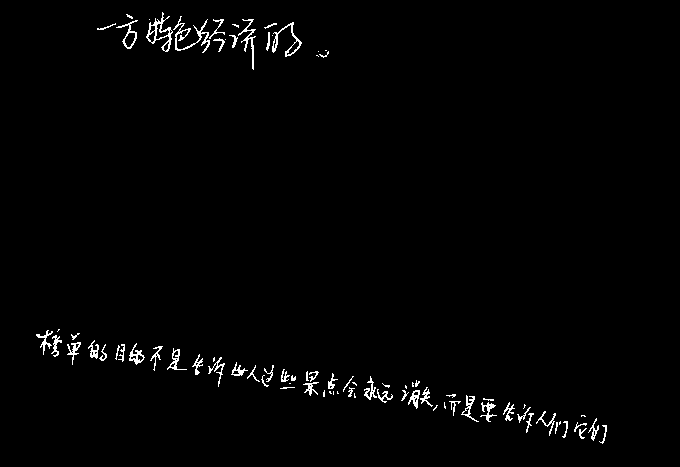 一方特色经济的。
榜单的目的不是告诉世人这些景点会永远消失,而是要告诉人们它们